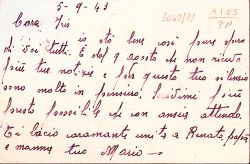 5-9-43
2062/77
A1ES
3P
Cara Iris
io sto bene così spero
di voi tutti. È dal 9 agosto che non ricevo
più tue notizie e per questo tuo silenzio
sono molto in pensiero. Scrivimi più
presto possibile che con ansia attendo.
Ti bacio caramente unita a Renata, papà
e mamma tuo Mario